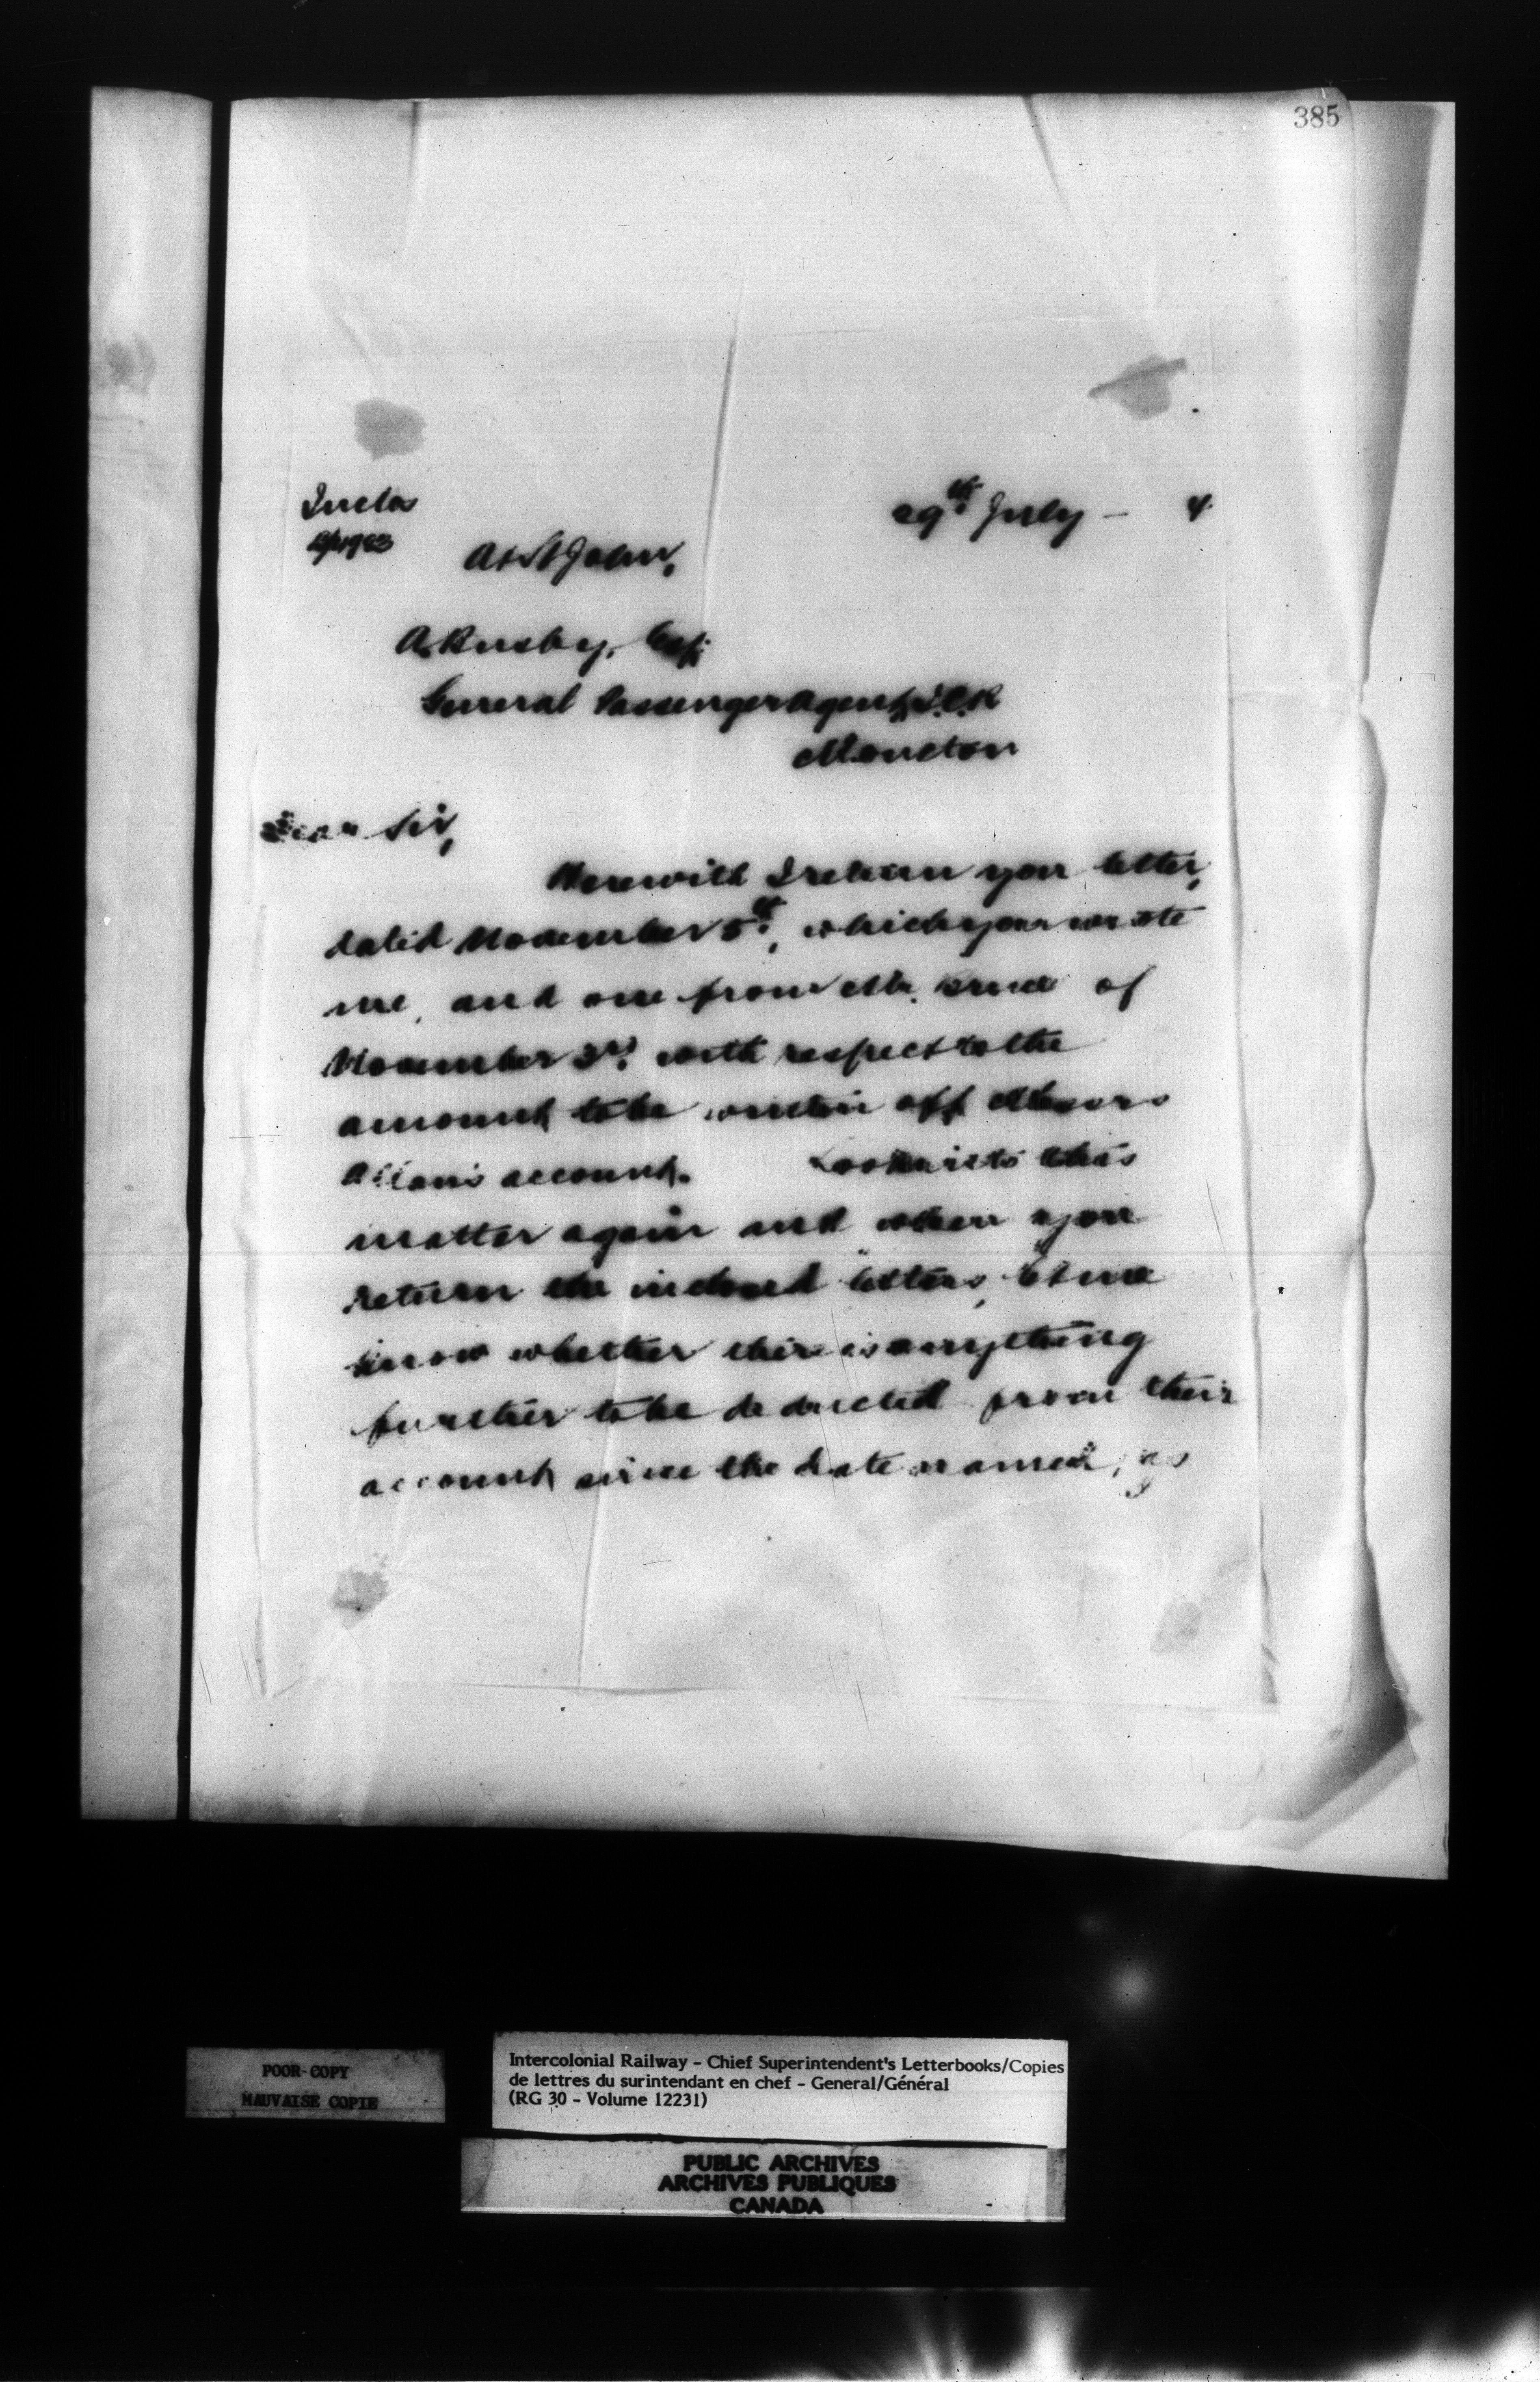 385
Inclos
29th July - 4
At St John,
A. Busby, Esq.
General Passenger Agent, I.C.R
Moncton
Dear Sir,
Herewith I return your letter,
dated November 5th, which you wrote
me, and one from Mr. of
November 3rd. with respect to the
amount to be written off Messrs
Allan's account. Look into this
matter again and when you
return the inclosed letters, let me
know whether there is anything
further to be deducted from their
account since the date named, as
POOR COPY
MAUVAISE COPIE
Intercolonial Railway - Chief Superintendent's Letterbooks/Copies
de lettres du surintendant en chef - General/Général
(RG 30 - Volume 12231)
PUBLIC ARCHIVES
ARCHIVES PUBLIQUES
CANADA